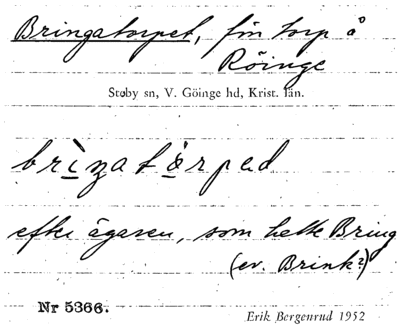 Bringatorpet, fin torp å
Röinge
Stoby sn, V. Göinge hd, Krist. län.
brìŋatòrped
efter ägaren, som hette Bring
(ev. Brink?)
Nr 5366.
Erik Bergenrud 1952